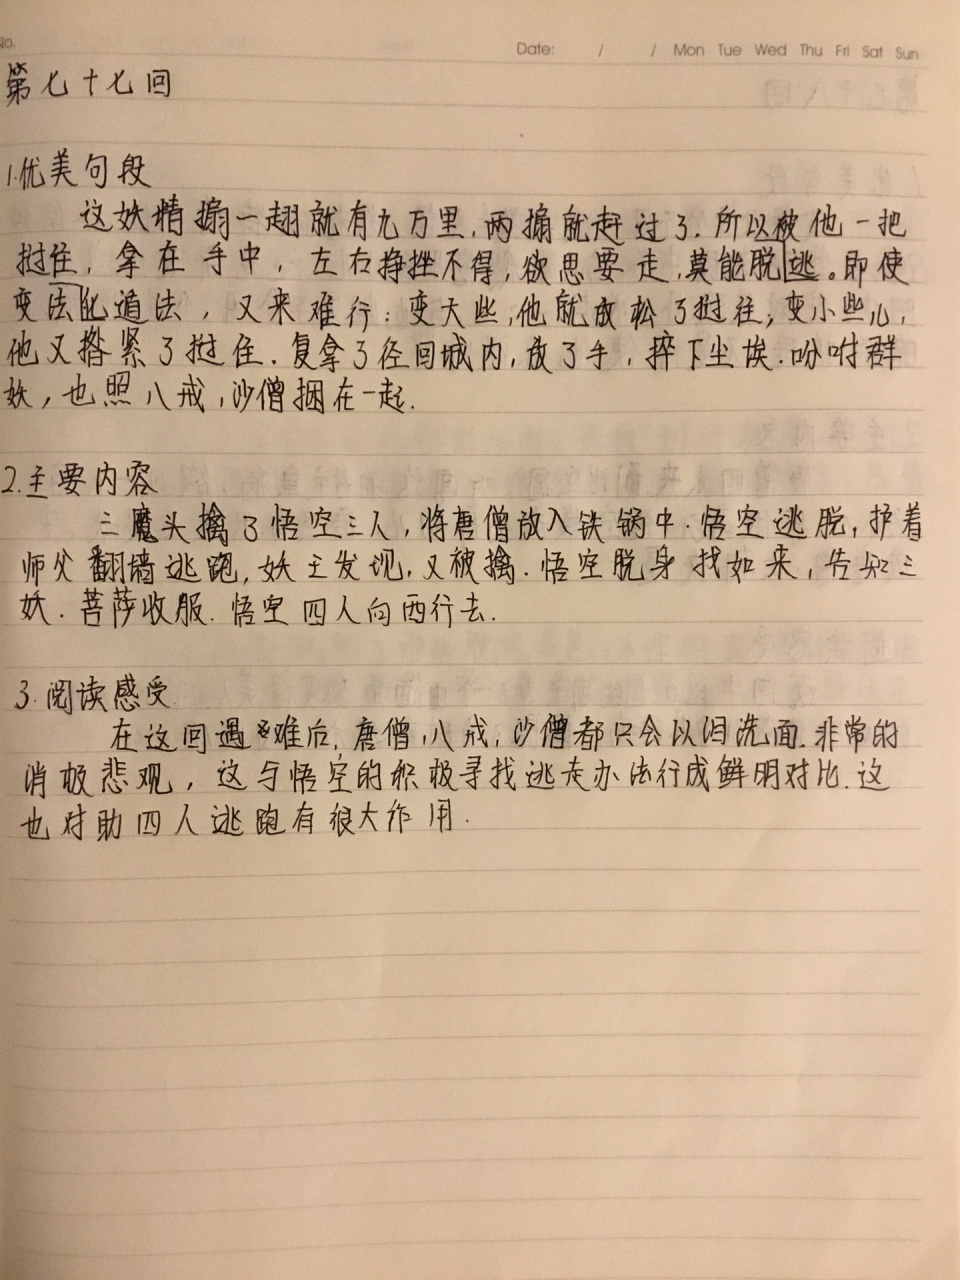 No.
Date: / / Mon Tue Wed Thu Fri Sat Sun
第七十七回
1.优美句段
这妖精搧一翅就有九万里,两搧就赶过了.所以被他一把
挝住,拿在手中,左右挣挫不得,欲思要走,莫能脱逃。即使
变法化遁法,又来难行:变大些,他就放松了挝住;变小些儿,
他又揝紧了挝住.复拿了径回城内,放了手,捽下尘埃.吩咐群
妖,也照八戒,沙僧捆在一起.
2.主要内容
三魔头擒了悟空三人,将唐僧放入铁锅中.悟空逃脱,护着
师父翻墙逃跑,妖王发现,又被擒.悟空脱身找如来,告知三
妖.菩萨收服.悟空四人向西行去.
3.阅读感受
在这回遇难后,唐僧,八戒,沙僧都只会以泪洗面.非常的
消极悲观,这与悟空的积极寻找逃走办法行成鲜明对比.这
也对助四人逃跑有很大作用.